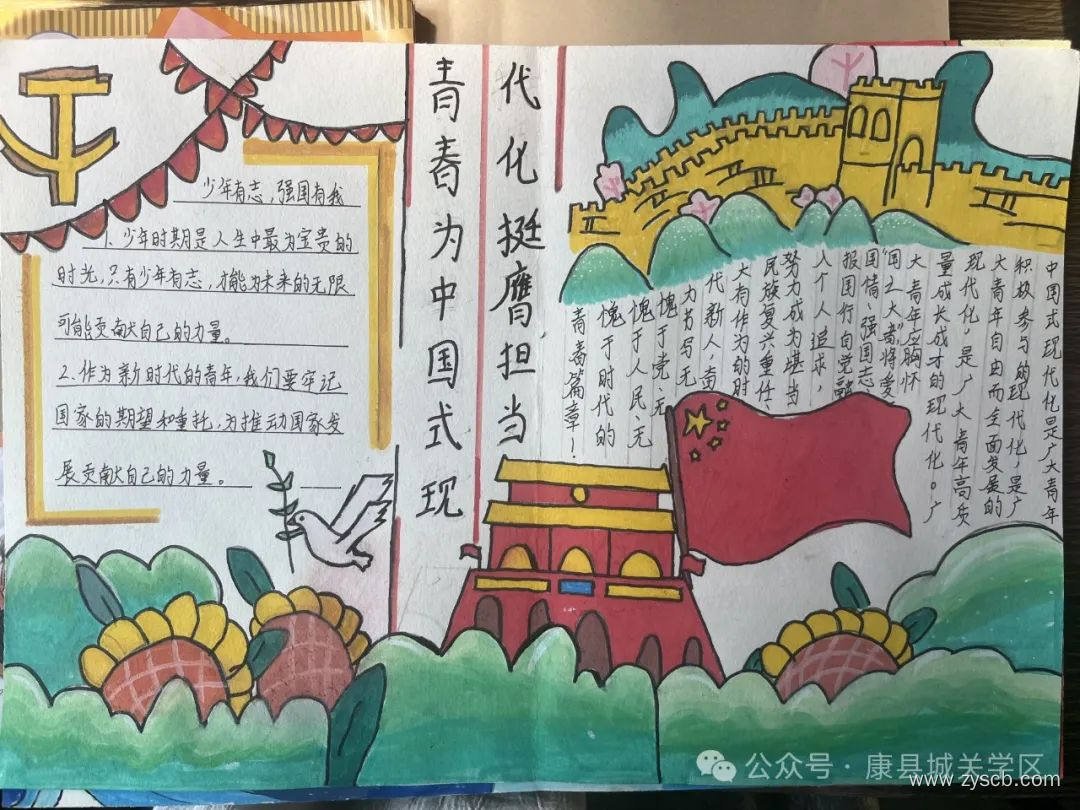 少年有志，强国有我
1、少年时期是人生中最为宝贵的
时光，只有少年有志，才能为未来的无限
可能贡献自己的力量。
2、作为新时代的青年，我们要牢记
国家的期望和重托，为推动国家发
展贡献自己的力量。
青春为中国式现
代化挺膺担当
中国式现代化是广大青年
积极参与的现代化，是广
大青年自由而全面发展的
现代化，是广大青年高质
量成长成才的现代化。广
大青年应胸怀
“国之大者”，将爱
国情、强国志、
报国行自觉融
入个人追求，
努力成为堪当
民族复兴重任
大有作为的时
代新人，奋
力书写无
愧于党、无
愧于人民、无
愧于时代的
青春篇章！
公众号·康县城关学区
www.zyscb.com